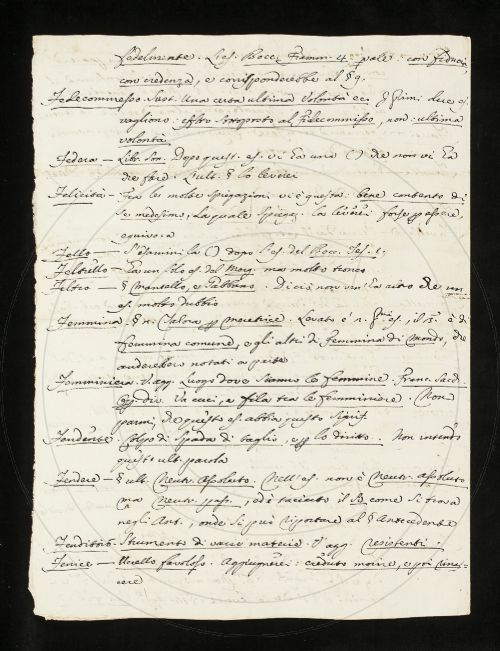 Fedelmente. L'es. Bocc. Fiamm. 4. vale: con fiducia,
con credenza, e corrisponderebbe al § 9.
Fedecommesso. Sust. Una certa ultima volontà ec. I primi due es.
vagliono: effetto sottoposto al Fidecommisso, non: ultima
volontà.
Federa — Libr. Son. Dopo quest. es. vi ha una () che non vi ha
che fare. L'ult. § lo leverei
Felicità — Fra le molte spiegazioni vi è questa: bene contento di
se medesimo, la quale spiegaz. la leverei forse per essere
equivoca
Fello — S'esamini la () dopo l'es. del Bocc. Tes. 1.
Feltrello — Ha un solo es. del Morg. ma molto tronco
Feltro — § Mantello, e Pastrano. Di ciò non vi ha altro che un
es. molto dubbio
Femmina § 2. Talora per Meretrice. Levato è 1. es., il 3. è di
femmina comune, e gli altri di femmina di Mondo, che
anderebbero notati a parte
Femminiera. V. agg. Luogo dove stanno le femmine. Franc. Sacch.
Op. div. Va cui, e fila tra le femminiere. Non
parmi, che questo es. abbia questo signif.
Fendente. Colpo di spada di taglio, e per lo diritto. Non intendo
quest' ult. parola
Fendere — § ult. Neutr. Assoluto. Nell' es. non è Neutr. assoluto
ma Neutr. pass., ed è taciuto il Si come si trova
negli Ant., onde si può riportare al § Antecedente
Fenditoio. Strumento di varie materie. S'agg. resistenti.
Fenice — Uccello favoloso. Aggiugnerei: creduto morire, e poi rinas-
cere